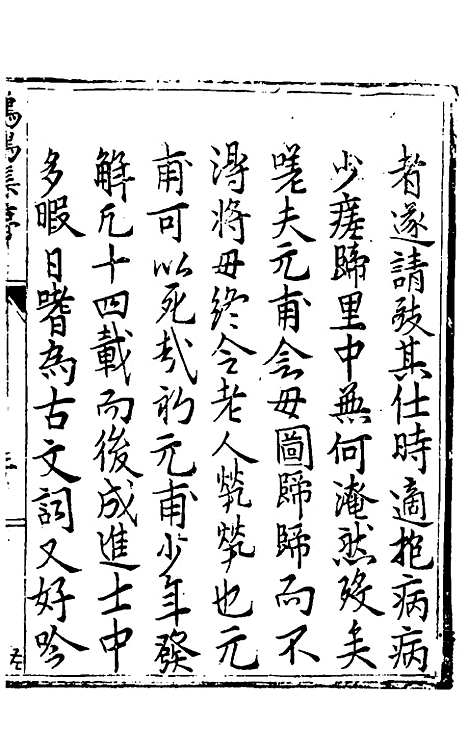 者遂請致其仕時適抱病病
少瘥歸里中無何淹然歿矣
嗟夫元甫念母圖歸歸而不
得將母終令老人煢煢也元
甫可以死哉初元甫少年發
解凡十四載而後成進士中
多暇日嗜為古文詞又好吟